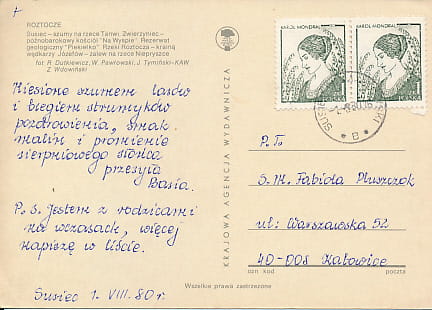 ROZTOCZE
Susiec – szumy na rzece Tanwi, Zwierzyniec –
późnobarokowy kościół "Na Wyspie". Rezerwat
geologiczny "Piekiełko". Rzeki Roztocza – krainą
wędkarzy. Józefów – zalew na rzece Niepryszce
fot. R. Dutkiewicz, W. Pawłowski, J. Tymiński-KAW
Z. Wdowiński
Niesione szumem lasów
i biegiem strumyków
pozdrowienia, smak
malin i promienie
sierpniowego słońca
przesyła
Basia.
P. S. Jestem z rodzicami
na wczasach, więcej
napiszę w liście.
Susiec 1. VIII. 80 r.
KRAJOWA AGENCJA WYDAWNICZA
KAROL MONDRAL
KAROL MONDRAL
P. T.
S. M. Fabiola Pluszczok
ul: Warszawska 52
40-008 Katowice
ozn kod
poczta
Wszelkie prawa zastrzeżone